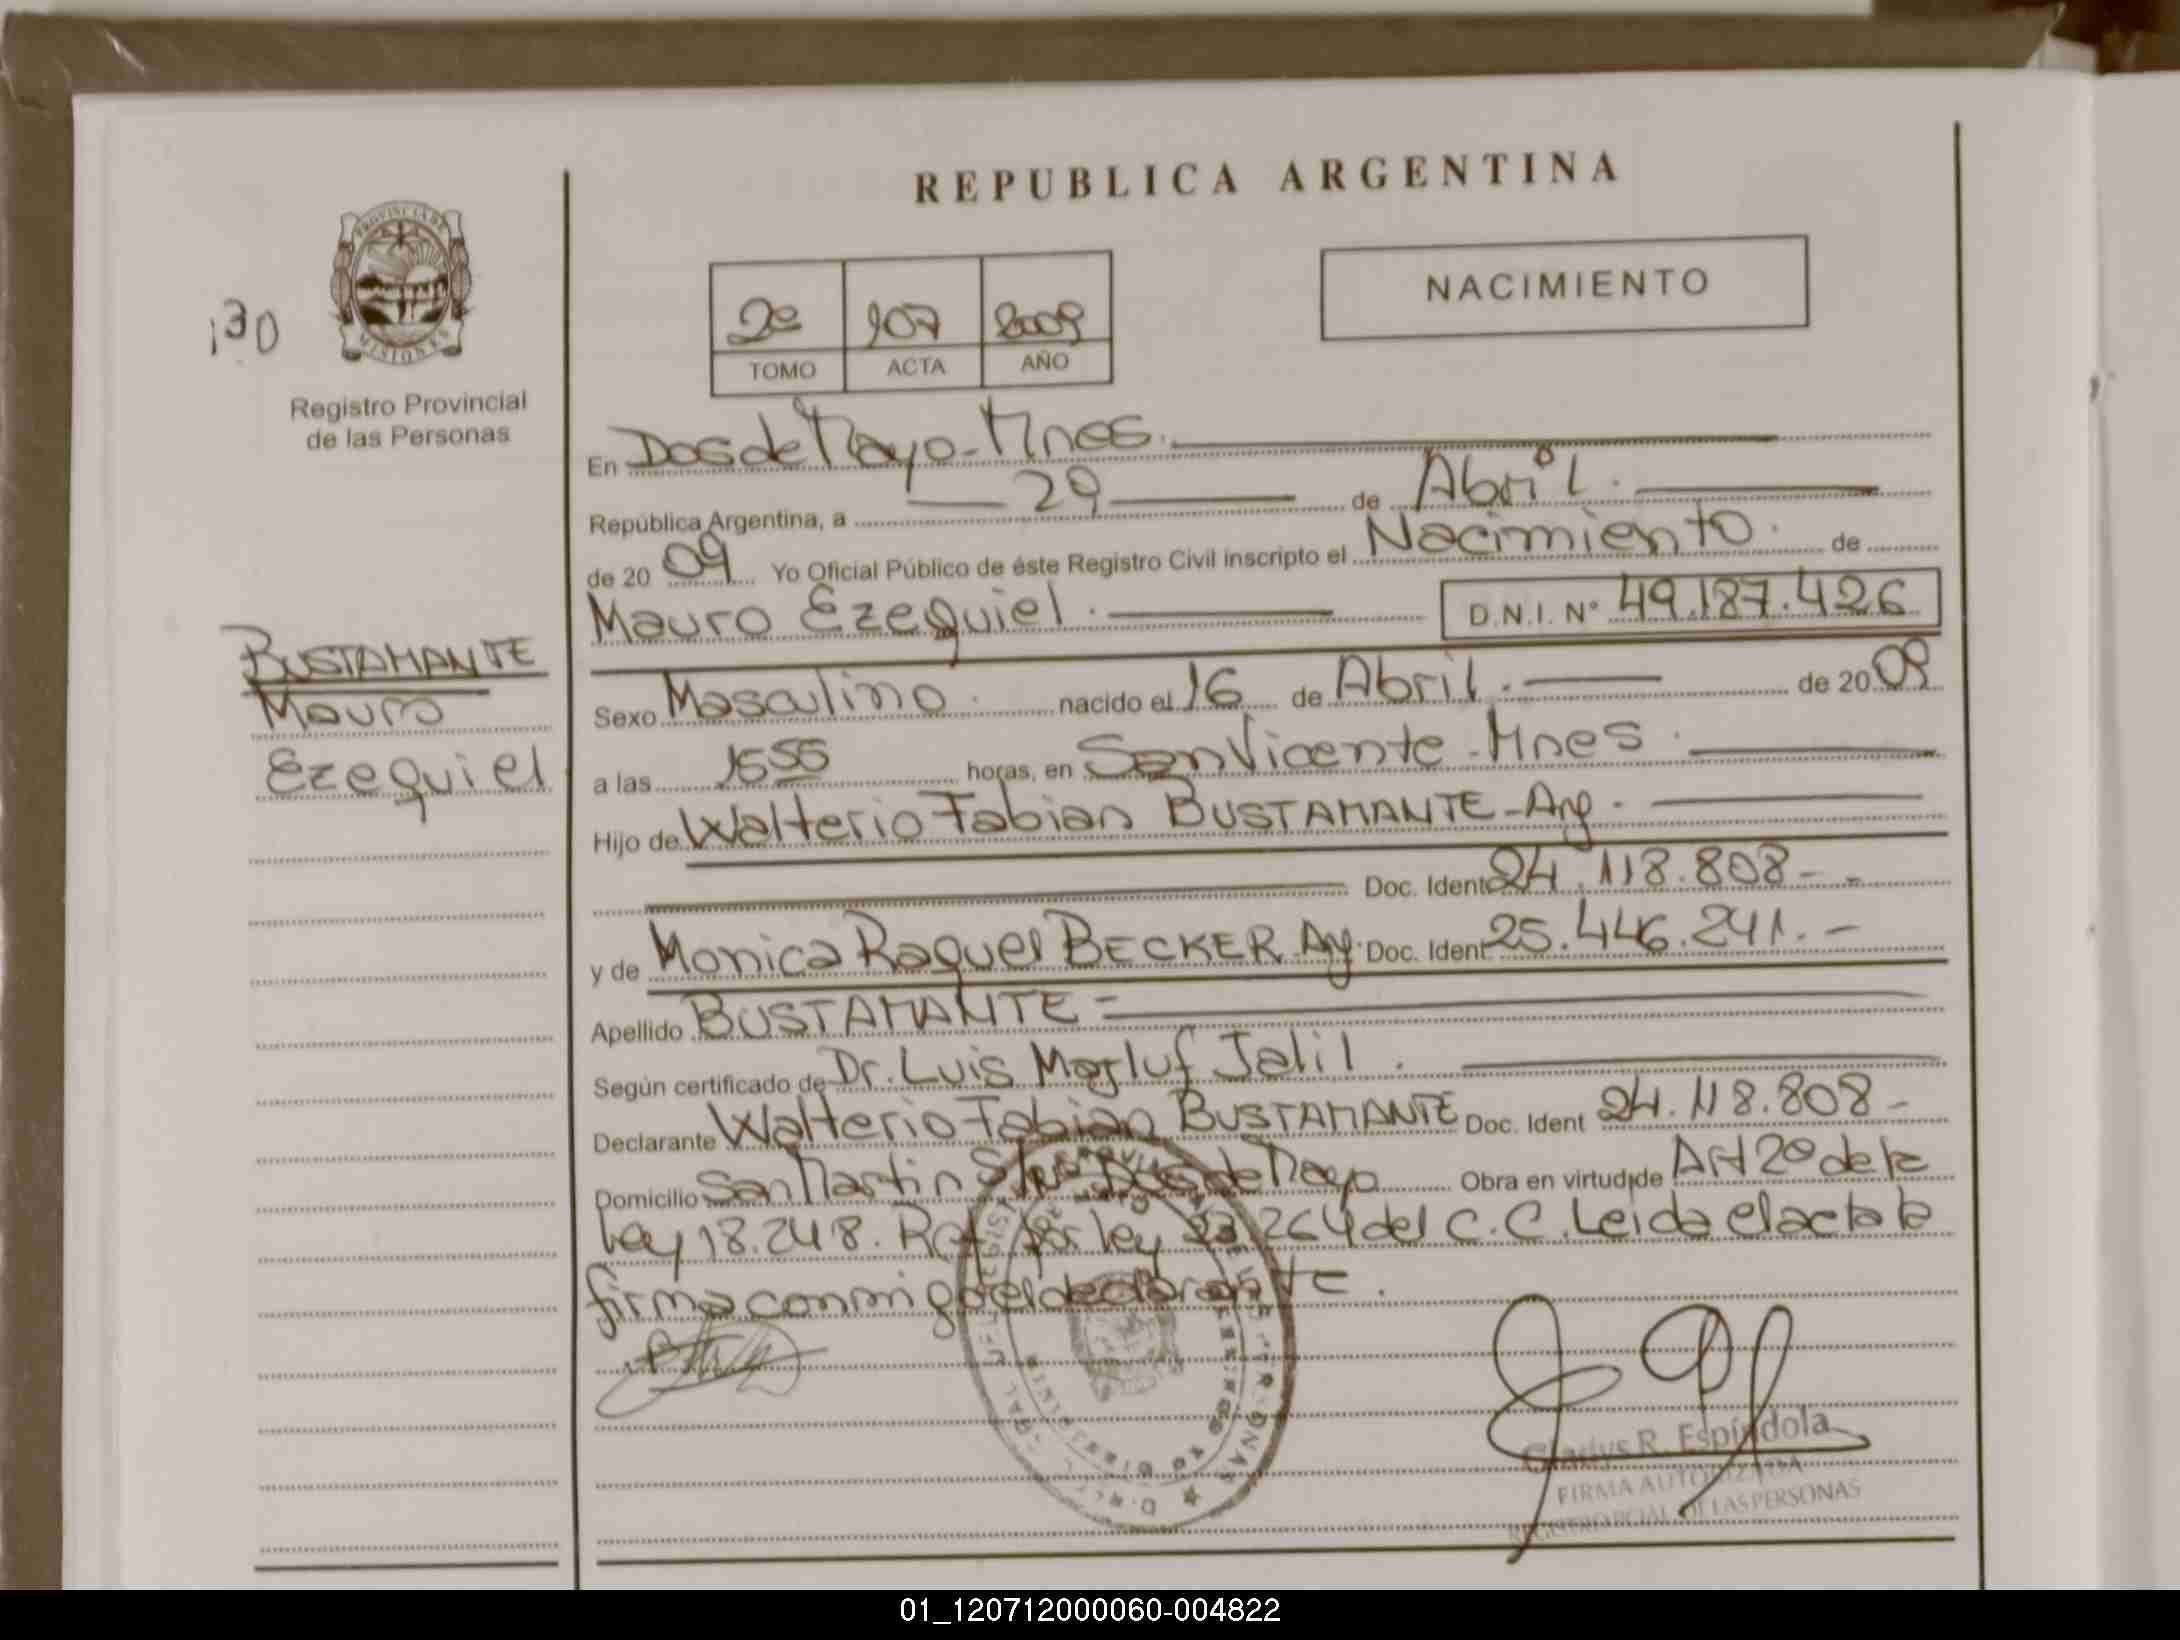 REPUBLICA ARGENTINA
NACIMIENTO
130
PROVINCIA DE
MISIONES
Registro Provincial
de las Personas
2º 107 2009
TOMO ACTA AÑO
En Dos de Mayo - Mnes.
República Argentina, a 29 de Abril.
de 20 09 Yo Oficial Público de éste Registro Civil inscripto el Nacimiento. de
Mauro Ezequiel. D.N.I. Nº 49.187.426
BUSTAMANTE
Mauro
Ezequiel
Sexo Masculino. nacido el 16 de Abril. de 20 09
a las 1655 horas, en San Vicente - Mnes.
Hijo de Walterio Fabian BUSTAMANTE - Arg.
Doc. Ident 24.118.808 - -
y de Monica Raquel BECKER Arg. Doc. Ident 25.446.241. -
Apellido BUSTAMANTE =
Según certificado de Dr. Luis Jalil.
Declarante Walterio Fabian BUSTAMANTE Doc. Ident 24.118.808 -
Domicilio San Martin S/nº Dos de Mayo Obra en virtud de Art 2º de la
Ley 18.248. Ref por Ley 23.264 del C.C. Leida el acta la
firma conmigo el declarante.
Gladys R. Espíndola
FIRMA AUTORIZADA
REGISTRO PCIAL. DE LAS PERSONAS
01_120712000060-004822